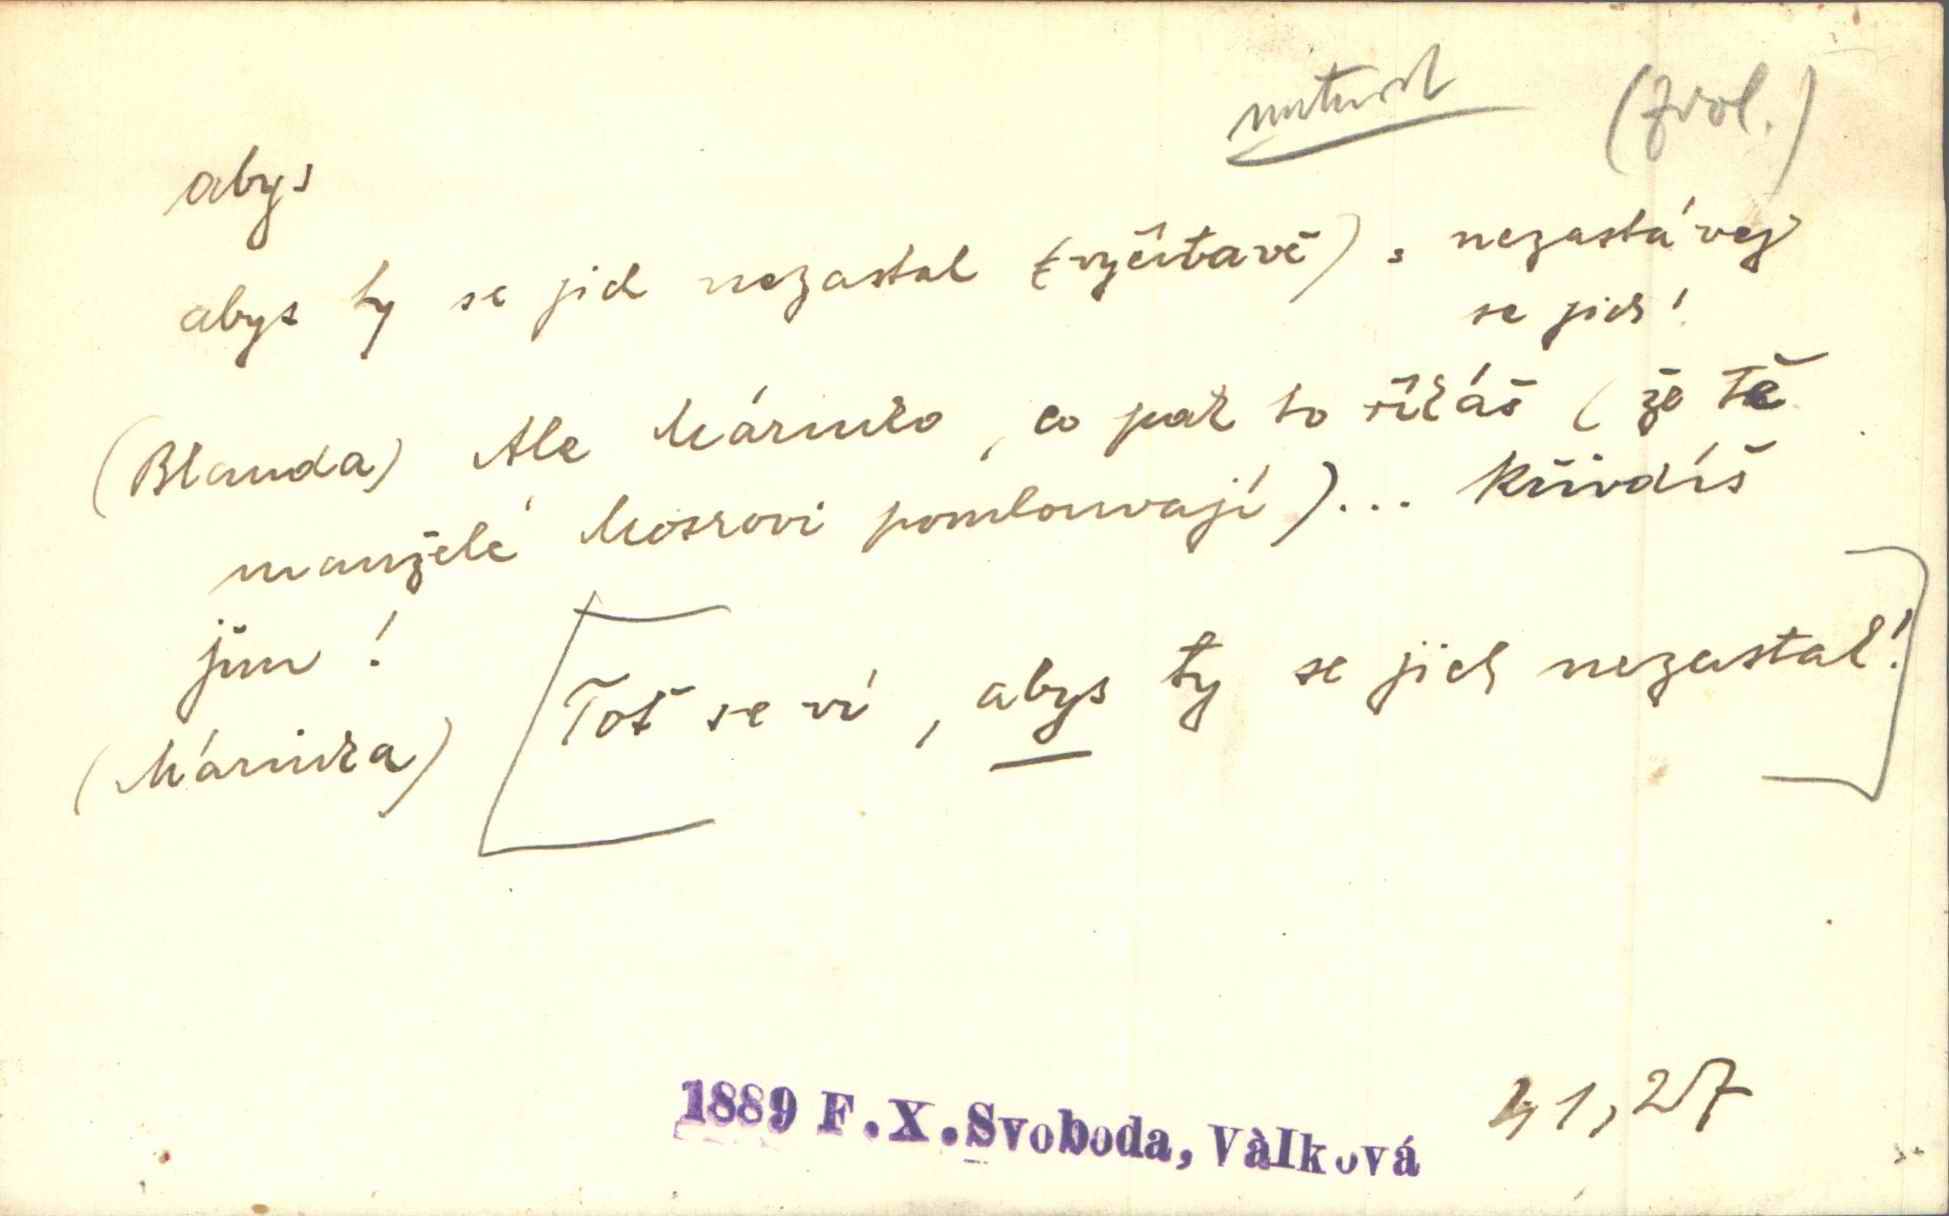 (zvol.)
abys
abys ty se jich nezastal (vyčítavě) = nezastávej
se jich!
(Blanda) Ale Márinko, co pak to říkáš (že tě
manželé Mosrovi pomlouvají)... Křivdíš
jim!
(Márinka) [Toť se ví, abys ty se jich nezastal!]
1889 F.X.Svoboda, Vàlková 41,27